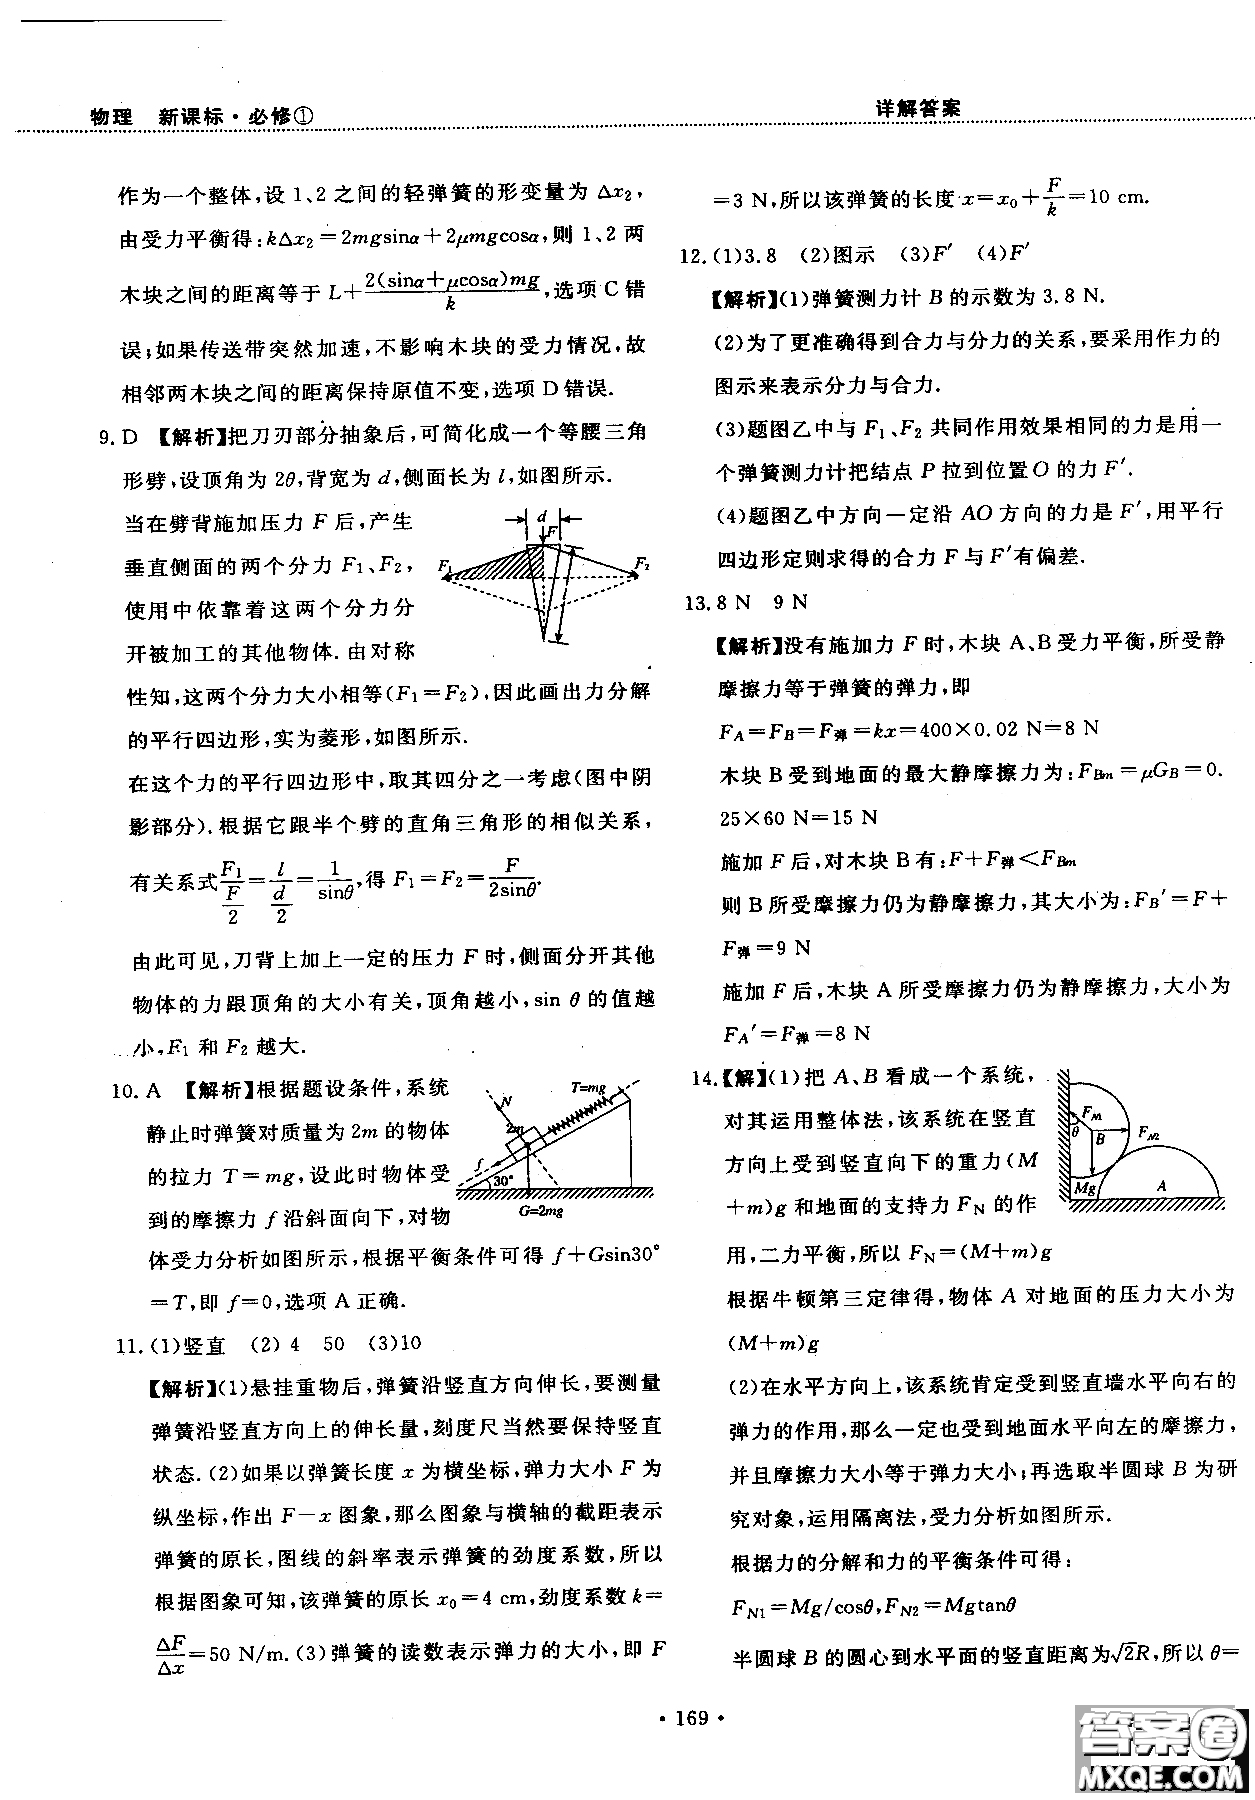 物理 新课标·必修①
详解答案
作为一个整体,设 1、2 之间的轻弹簧的形变量为 Δx₂,
由受力平衡得:kΔx₂=2mgsinα+2μmgcosα,则 1、2 两
木块之间的距离等于 L+2(sinα+μcosα)mg/k,选项 C 错
误;如果传送带突然加速,不影响木块的受力情况,故
相邻两木块之间的距离保持原值不变,选项 D 错误.
9. D 【解析】把刀刃部分抽象后,可简化成一个等腰三角
形劈,设顶角为 2θ,背宽为 d,侧面长为 l,如图所示.
当在劈背施加压力 F 后,产生
垂直侧面的两个分力 F₁、F₂,
使用中依靠着这两个分力分
开被加工的其他物体.由对称
d
F
F₁
F₂
l
性知,这两个分力大小相等(F₁=F₂),因此画出力分解
的平行四边形,实为菱形,如图所示.
在这个力的平行四边形中,取其四分之一考虑(图中阴
影部分).根据它跟半个劈的直角三角形的相似关系,
有关系式 F₁/(F/2)=l/(d/2)=1/sinθ,得 F₁=F₂=F/2sinθ.
由此可见,刀背上加上一定的压力 F 时,侧面分开其他
物体的力跟顶角的大小有关,顶角越小,sin θ 的值越
小,F₁ 和 F₂ 越大.
10. A 【解析】根据题设条件,系统
静止时弹簧对质量为 2m 的物体
的拉力 T=mg,设此时物体受
到的摩擦力 f 沿斜面向下,对物
N
T=mg
2m
f
30°
G=2mg
体受力分析如图所示,根据平衡条件可得 f+Gsin30°
=T,即 f=0,选项 A 正确.
11. (1)竖直 (2) 4 50 (3)10
【解析】(1)悬挂重物后,弹簧沿竖直方向伸长,要测量
弹簧沿竖直方向上的伸长量,刻度尺当然要保持竖直
状态.(2)如果以弹簧长度 x 为横坐标,弹力大小 F 为
纵坐标,作出 F-x 图象,那么图象与横轴的截距表示
弹簧的原长,图线的斜率表示弹簧的劲度系数,所以
根据图象可知,该弹簧的原长 x₀=4 cm,劲度系数 k=
ΔF/Δx=50 N/m.(3)弹簧的读数表示弹力的大小,即 F
=3 N,所以该弹簧的长度 x=x₀+F/k=10 cm.
12. (1)3.8 (2)图示 (3)F′ (4)F′
【解析】(1)弹簧测力计 B 的示数为 3.8 N.
(2)为了更准确得到合力与分力的关系,要采用作力的
图示来表示分力与合力.
(3)题图乙中与 F₁、F₂ 共同作用效果相同的力是用一
个弹簧测力计把结点 P 拉到位置 O 的力 F′.
(4)题图乙中方向一定沿 AO 方向的力是 F′,用平行
四边形定则求得的合力 F 与 F′有偏差.
13. 8 N 9 N
【解析】没有施加力 F 时,木块 A、B 受力平衡,所受静
摩擦力等于弹簧的弹力,即
F_A=F_B=F弹=kx=400×0.02 N=8 N
木块 B 受到地面的最大静摩擦力为:F_Bm=μG_B=0.
25×60 N=15 N
施加 F 后,对木块 B 有:F+F弹<F_Bm
则 B 所受摩擦力仍为静摩擦力,其大小为:F_B′=F+
F弹=9 N
施加 F 后,木块 A 所受摩擦力仍为静摩擦力,大小为
F_A′=F弹=8 N
14.【解】(1)把 A、B 看成一个系统,
对其运用整体法,该系统在竖直
方向上受到竖直向下的重力(M
+m)g 和地面的支持力 F_N 的作
F_N1
θ
B
F_N2
Mg
A
用,二力平衡,所以 F_N=(M+m)g
根据牛顿第三定律得,物体 A 对地面的压力大小为
(M+m)g
(2)在水平方向上,该系统肯定受到竖直墙水平向右的
弹力的作用,那么一定也受到地面水平向左的摩擦力,
并且摩擦力大小等于弹力大小;再选取半圆球 B 为研
究对象,运用隔离法,受力分析如图所示.
根据力的分解和力的平衡条件可得:
F_N1=Mg/cosθ,F_N2=Mgtanθ
半圆球 B 的圆心到水平面的竖直距离为√2R,所以 θ=
· 169 ·
答案圈
MXQE.COM